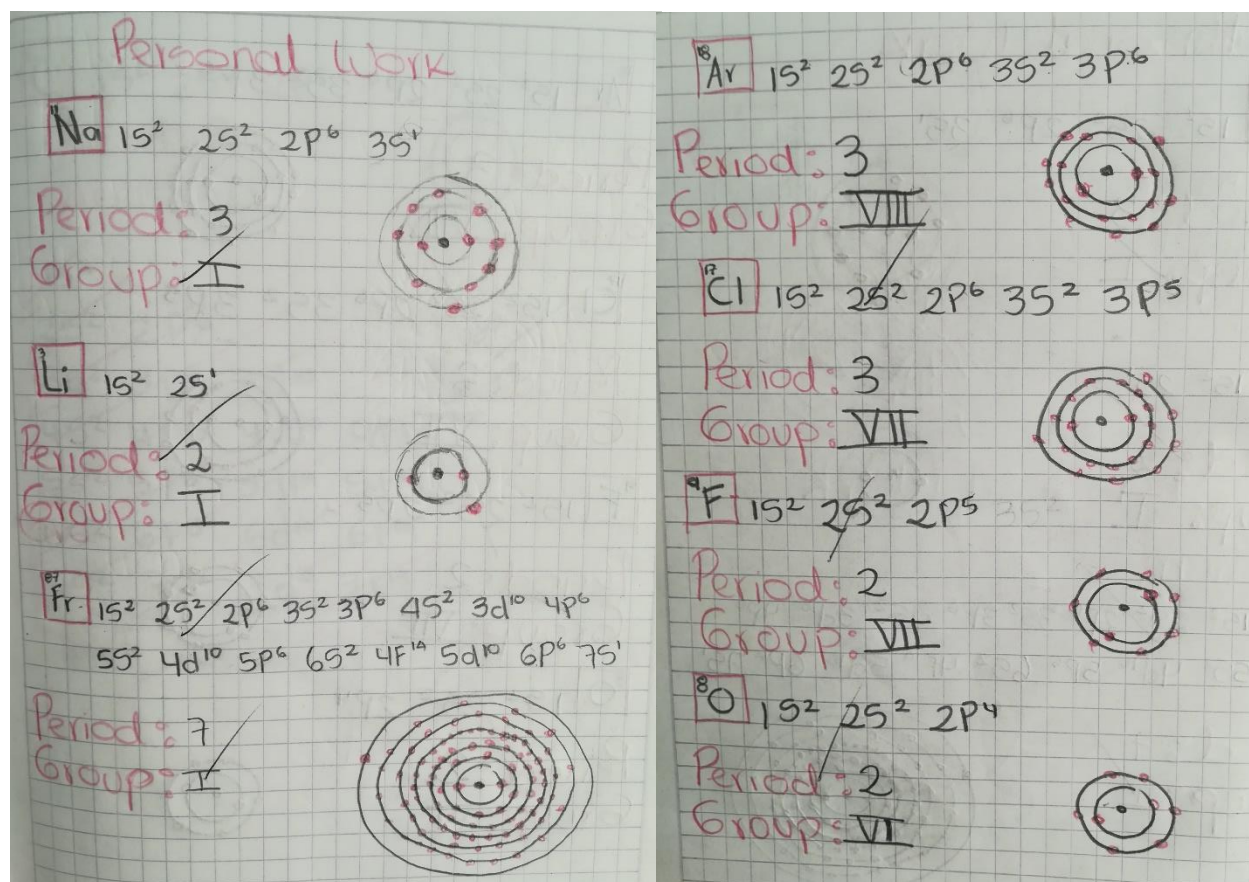 Personal Work
11 Na 1s² 2s² 2p⁶ 3s¹
Period: 3
Group: I
3 Li 1s² 2s¹
Period: 2
Group: I
87 Fr 1s² 2s² 2p⁶ 3s² 3p⁶ 4s² 3d¹⁰ 4p⁶
5s² 4d¹⁰ 5p⁶ 6s² 4F¹⁴ 5d¹⁰ 6p⁶ 7s¹
Period: 7
Group: I
18 Ar 1s² 2s² 2p⁶ 3s² 3p⁶
Period: 3
Group: VIII
17 Cl 1s² 2s² 2p⁶ 3s² 3p⁵
Period: 3
Group: VII
9 F 1s² 2s² 2p⁵
Period: 2
Group: VII
8 O 1s² 2s² 2p⁴
Period: 2
Group: VI